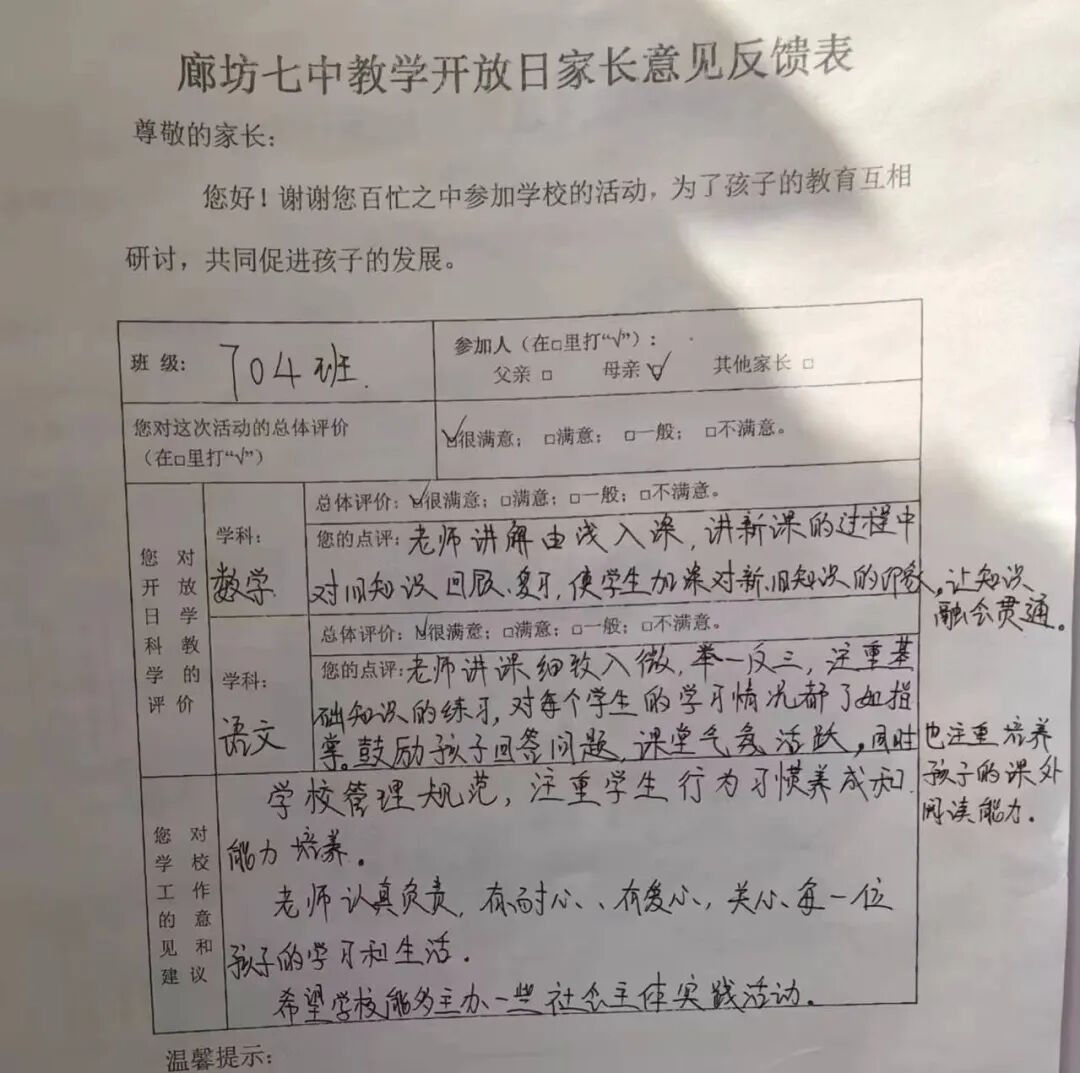 廊坊七中教学开放日家长意见反馈表
尊敬的家长：
您好！谢谢您百忙之中参加学校的活动，为了孩子的教育互相
研讨，共同促进孩子的发展。
班 级： 704班.
参加人（在□里打“√”）：
父亲 □ 母亲 ☑ 其他家长 □
您对这次活动的总体评价
（在□里打“√”）
☑很满意； □满意； □一般； □不满意。
您对开放日学科教学的评价
学科：
数学
总体评价：☑很满意；□满意；□一般；□不满意。
您的点评：老师讲解由浅入深，讲新课的过程中
对旧知识回顾、复习，使学生加深对新、旧知识的印象，让知识
融会贯通。
学科：
语文
总体评价：☑很满意；□满意；□一般；□不满意。
您的点评：老师讲课细致入微，举一反三，注重基
础知识的练习，对每个学生的学习情况都了如指
掌。鼓励孩子回答问题，课堂气氛活跃。同时也注重培养
孩子的课外
阅读能力.
您对学校工作的意见和建议
学校管理规范，注重学生行为习惯养成和
能力培养.
老师认真负责，有耐心、有爱心，关心每一位
孩子的学习和生活.
希望学校能多主办一些社会主体实践活动。
温馨提示：